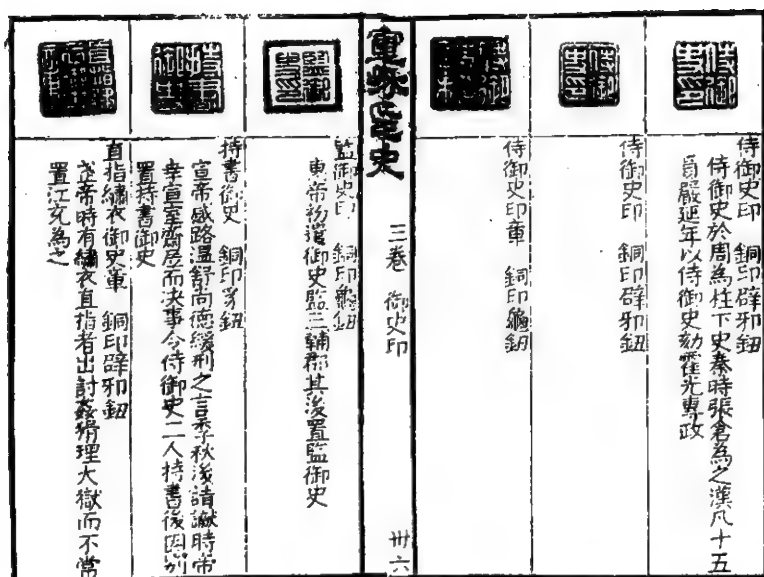 侍御史印
侍御史印 銅印辟邪鈕
侍御史於周為柱下史秦時張倉為之漢凡十五
員嚴延年以侍御史劾霍光專政
侍御史印
侍御史印 銅印辟邪鈕
侍御史印章 銅印龜鈕
宣咊印史 三卷 御史印 卅六
監御史印
監御史印 銅印龜鈕
惠帝初遣御史監三輔郡其後置監御史
持書御史
持書御史 銅印鼻鈕
宣帝感路溫舒尚德緩刑之言季秋後請讞時帝
幸宣室齋居而決事令侍御史二人持書後因別
置持書御史
直指繡衣御史章 銅印辟邪鈕
武帝時有繡衣直指者出討姦猾理大獄而不常
置江充為之